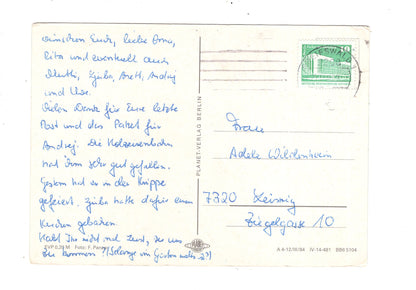 wünschen Euch, liebe Oma,
Rita und eventuell auch
Mutti, Gula, Anett, Andrej
und Uwe.
Vielen Dank für Eure letzte
Post und das Paket für
Andrej. Die Holzeisenbahn
hat ihm sehr gut gefallen.
Gestern hat es in der Krippe
gefeiert. hatte dafür einen
Kuchen gebacken.
Habt Ihr nicht mal Lust, zu uns
zu kommen? (Solange am Garten
PLANET-VERLAG BERLIN
10
Frau
Adele Wildenhain
7320 Leisnig
Ziegelgasse 10
EVP 0,20 M Foto: F.
A 6-12/III/84 IV-14-481